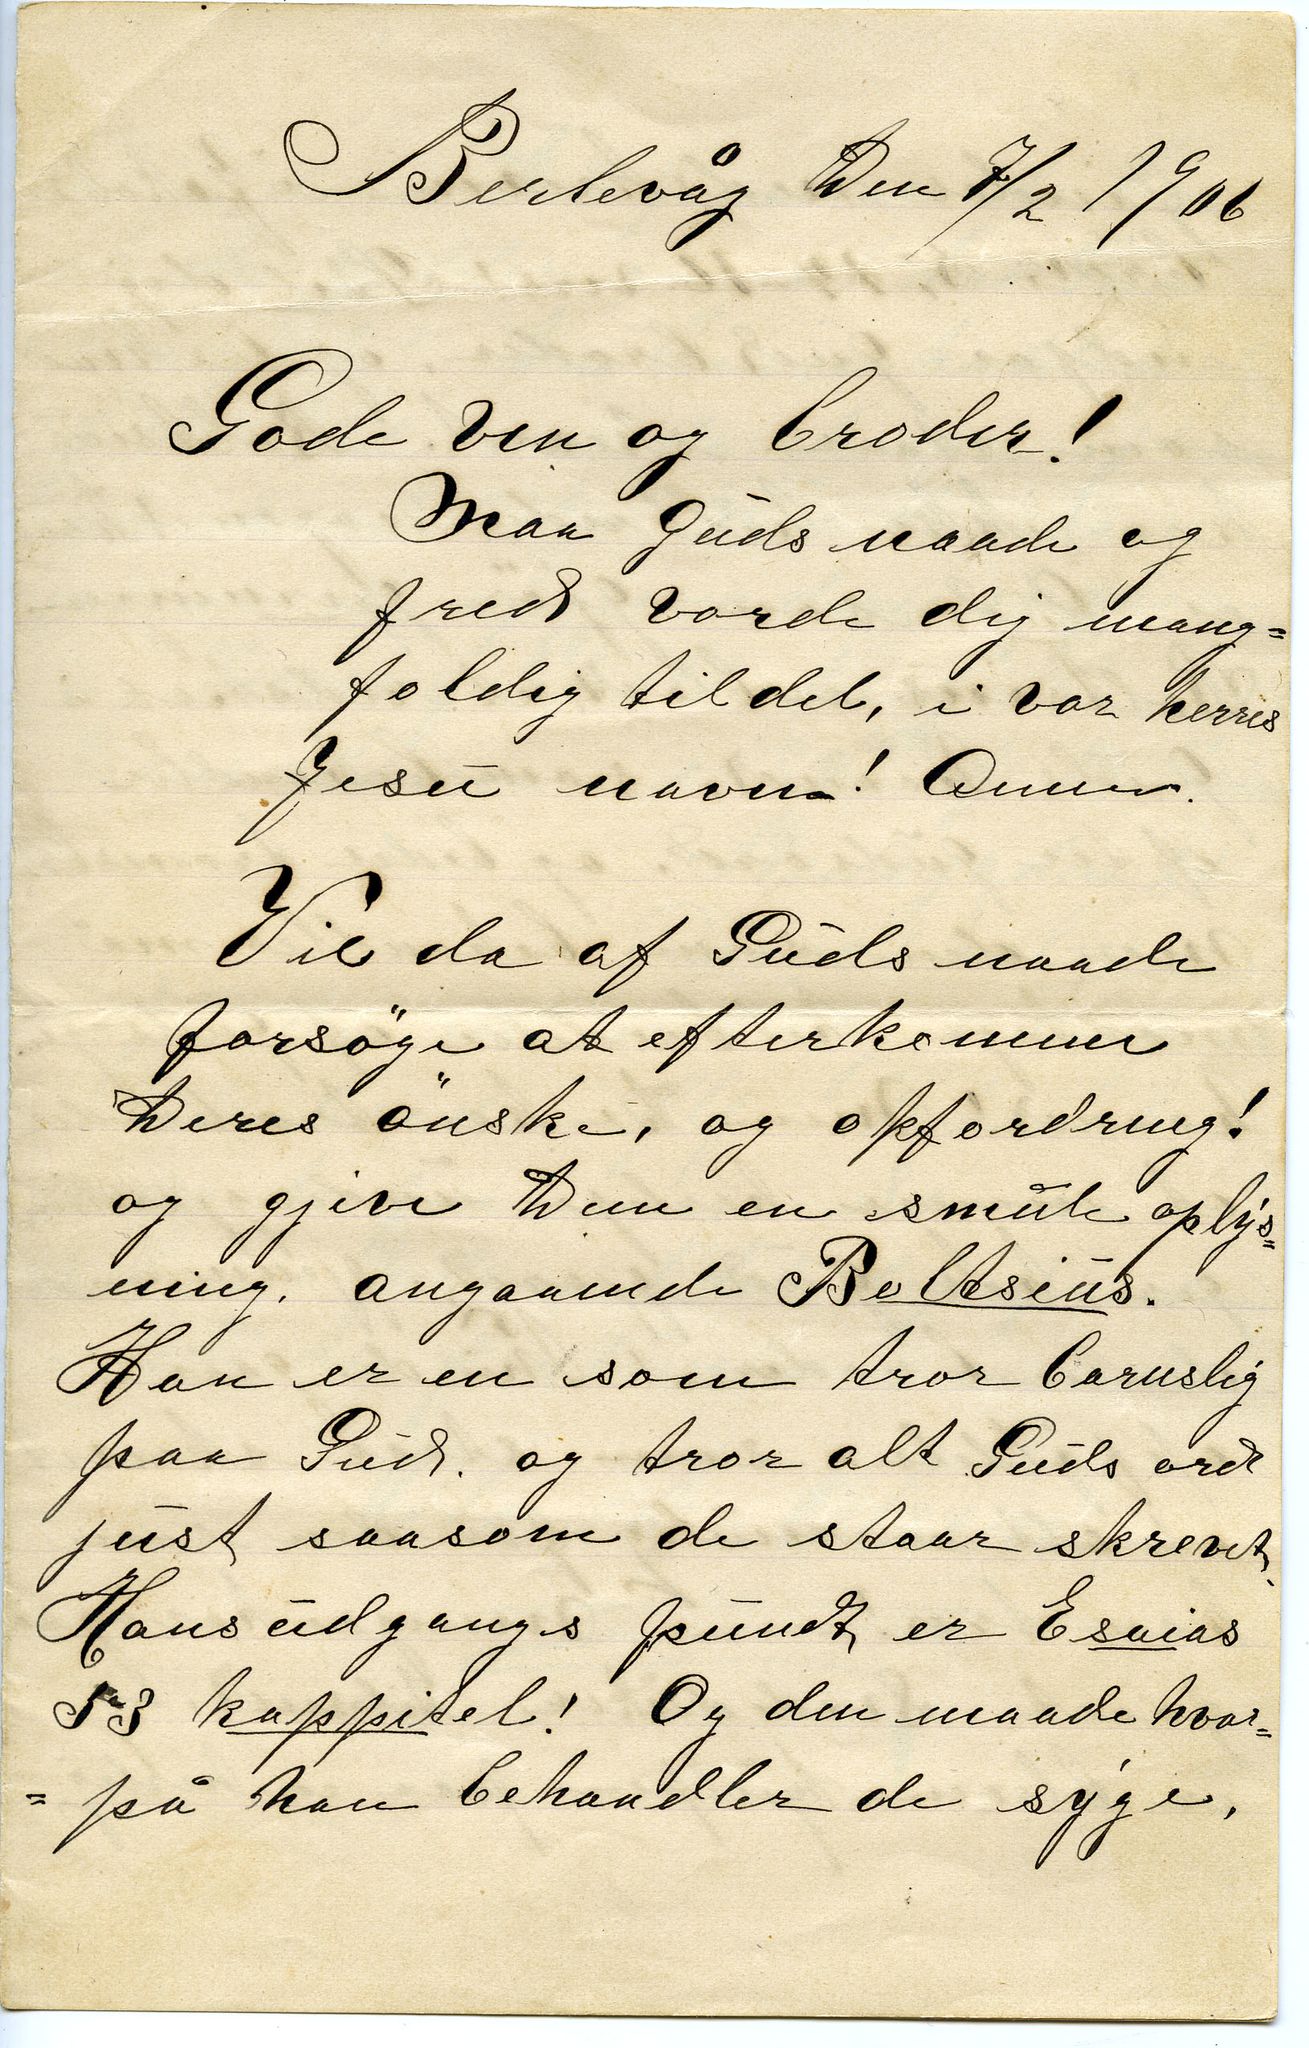 Berlevåg Den 7/2 1906
Gode ven og broder!
Maa Guds naade og
fred vorde dig mang=
foldig tildel, i vor herres
Jesu navn! Amen.
Vil da af Guds naade
forsöge at efterkomme
Deres önske, og opfordring!
og gjive Dem en smule oplys=
ning. angaaende Boltsius.
Han er en som tror barnslig
paa Gud. og tror alt Guds ord
just saasom de staar skrevet.
Hans udgangs pundt er Esaias
53 kappitel! Og den maade hvor=
= på han behandler de syge,